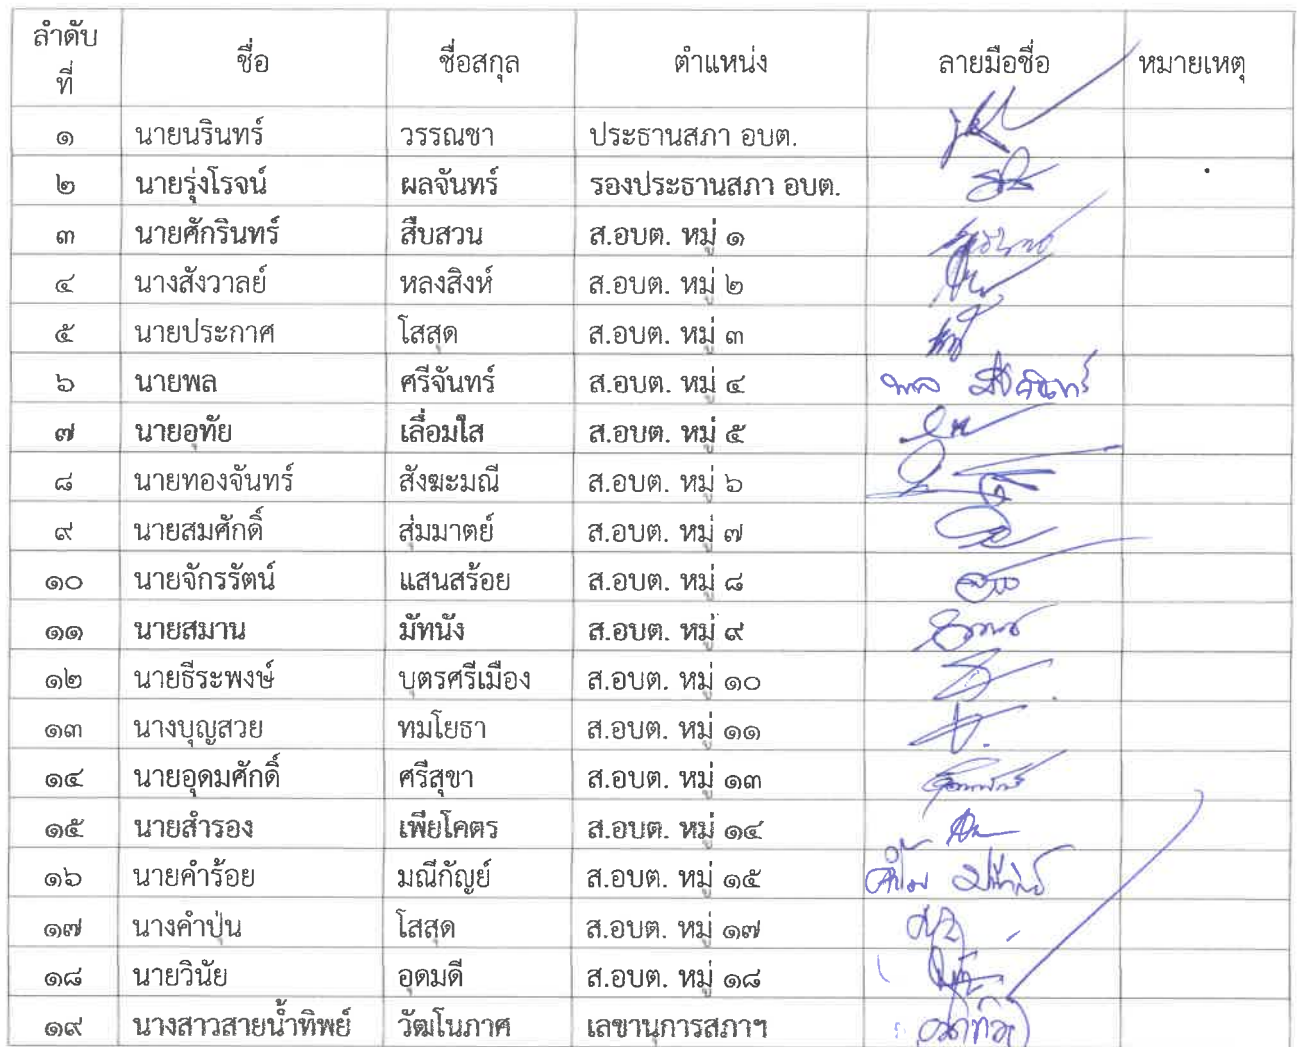 ลำดับที่ ชื่อ ชื่อสกุล ตำแหน่ง ลายมือชื่อ หมายเหตุ
๑ นายนรินทร์ วรรณชา ประธานสภา อบต.
๒ นายรุ่งโรจน์ ผลจันทร์ รองประธานสภา อบต.
๓ นายศักรินทร์ สืบสวน ส.อบต. หมู่ ๑
๔ นางสังวาลย์ หลงสิงห์ ส.อบต. หมู่ ๒
๕ นายประกาศ โสสุด ส.อบต. หมู่ ๓
๖ นายพล ศรีจันทร์ ส.อบต. หมู่ ๔ พล ศรีจันทร์
๗ นายอุทัย เลื่อมใส ส.อบต. หมู่ ๕
๘ นายทองจันทร์ สังฆะมณี ส.อบต. หมู่ ๖
๙ นายสมศักดิ์ สุ่มมาตย์ ส.อบต. หมู่ ๗
๑๐ นายจักรรัตน์ แสนสร้อย ส.อบต. หมู่ ๘
๑๑ นายสมาน มัทนัง ส.อบต. หมู่ ๙
๑๒ นายธีระพงษ์ บุตรศรีเมือง ส.อบต. หมู่ ๑๐
๑๓ นางบุญสวย ทมโยธา ส.อบต. หมู่ ๑๑
๑๔ นายอุดมศักดิ์ ศรีสุขา ส.อบต. หมู่ ๑๓
๑๕ นายสำรอง เพียโคตร ส.อบต. หมู่ ๑๔
๑๖ นายคำร้อย มณีกัญย์ ส.อบต. หมู่ ๑๕
๑๗ นางคำปุ่น โสสุด ส.อบต. หมู่ ๑๗
๑๘ นายวินัย อุดมดี ส.อบต. หมู่ ๑๘
๑๙ นางสาวสายน้ำทิพย์ วัฒโนภาศ เลขานุการสภาฯ